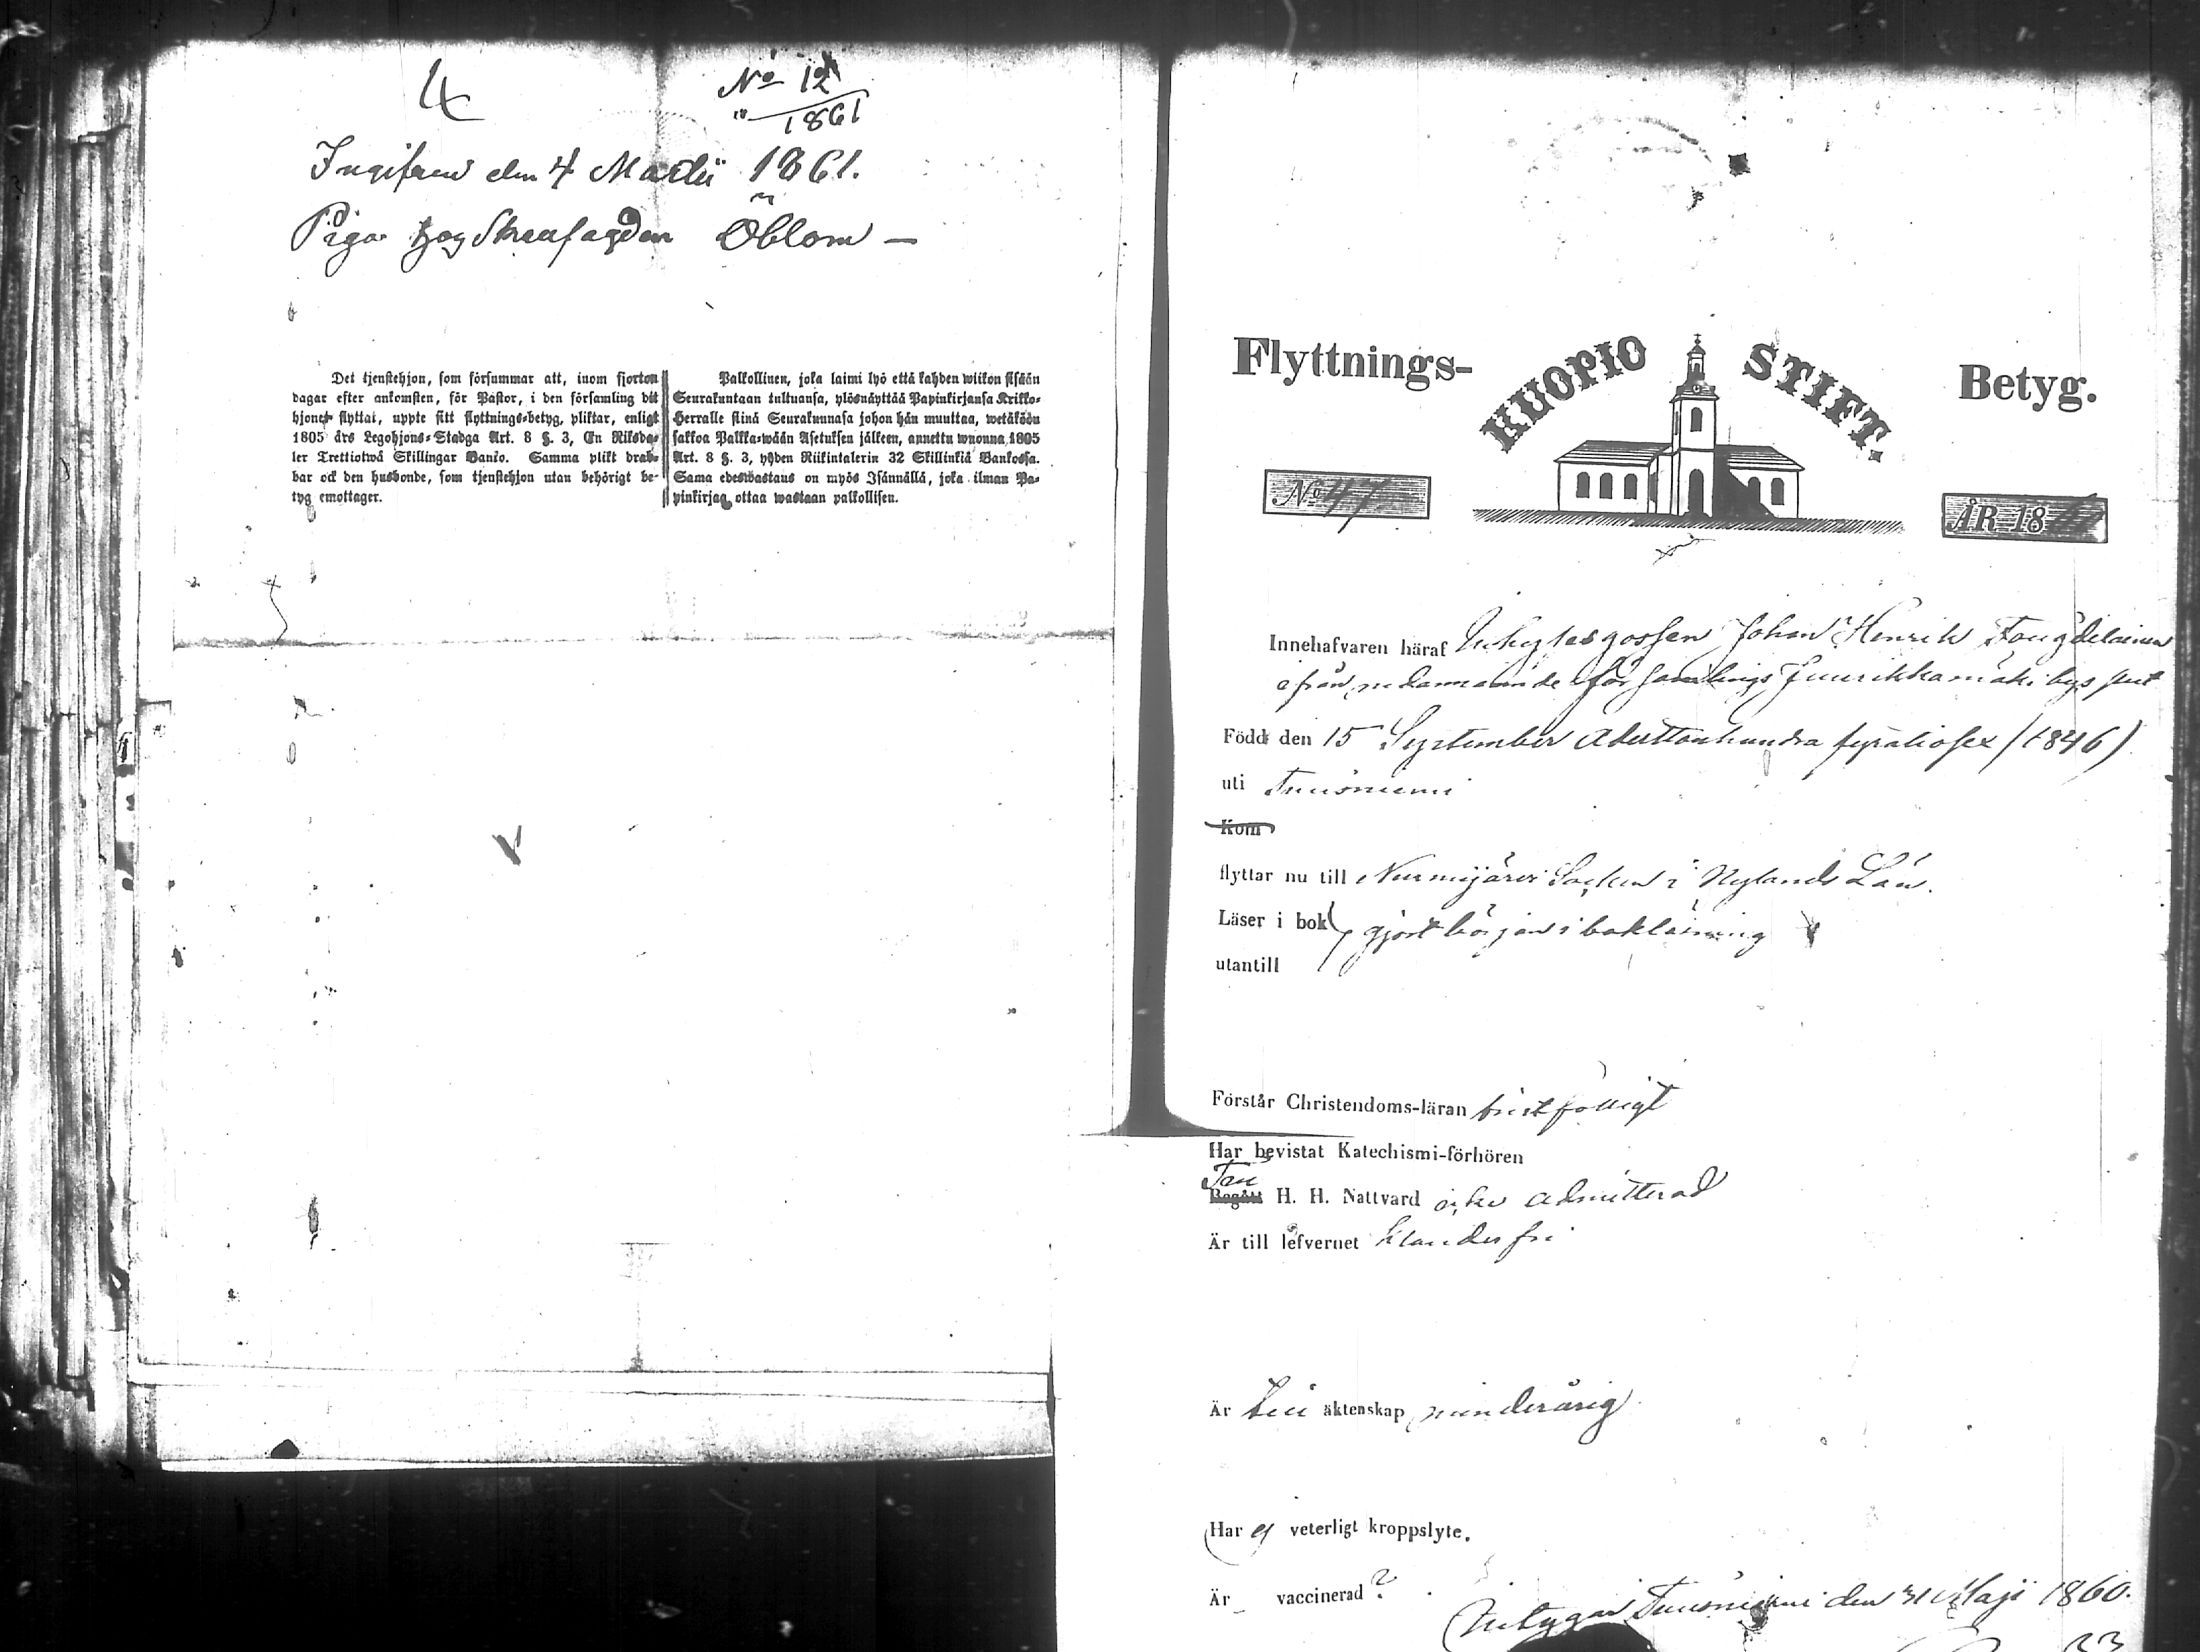 4
No 12
1861
Ingifven den 4 Martii 1861.
Piga hos Öblom —
Det tjenstehjon, som försummar att, inom fjorton
dagar efter ankomsten, för Pastor, i den församling dit
hjonet flyttat, uppte sitt flyttnings-betyg, pliktar, enligt
1805 års Legohjons-Stadga Art. 8 §. 3, En Riksda-
ler Trettiotwå Skillingar Banko. Samma plikt drab-
bar ock den husbonde, som tjenstehjon utan behörigt be-
tyg emottager.
Palkollinen, joka laimi lyö että kahden wiikon sisään
Seurakuntaan tultuansa, ylösnäyttää Papinkirjansa Kirkko-
Herralle siinä Seurakunnasa johon hän muuttaa, wetäköön
sakkoa Palkka-wään Asetuksen jälkeen, annettu wuonna 1805
Art. 8 §. 3, yhden Riikintalerin 32 Skillinkiä Bankossa.
Sama edeswastaus on myös Isännällä, joka ilman Pa-
pinkirjaa ottaa wastaan palkollisen.
Flyttnings- KUOPIO STIFT. Betyg.
No 47 ÅR 18
Innehafvaren häraf Inhyses gossen Johan Henrik
ifrån nedannämnde församlings Juurikkamäki by
Född den 15 September Adertonhundra fyratiosex (1846)
uti Tuusniemi
Kom
flyttar nu till Nurmijärvi Socken i Nylands Län.
Läser i bok gjort början i bokläsning
utantill
Förstår Christendoms-läran bristfälligt
Har bevistat Katechismi-förhören
Till
Begått H. H. Nattvard icke admitterad
Är till lefvernet klanderfri
Är till äktenskap minderårig
Har ej veterligt kroppslyte.
Är vaccinerad?
Intygar Tuusniemi den 31 Maji 1860.